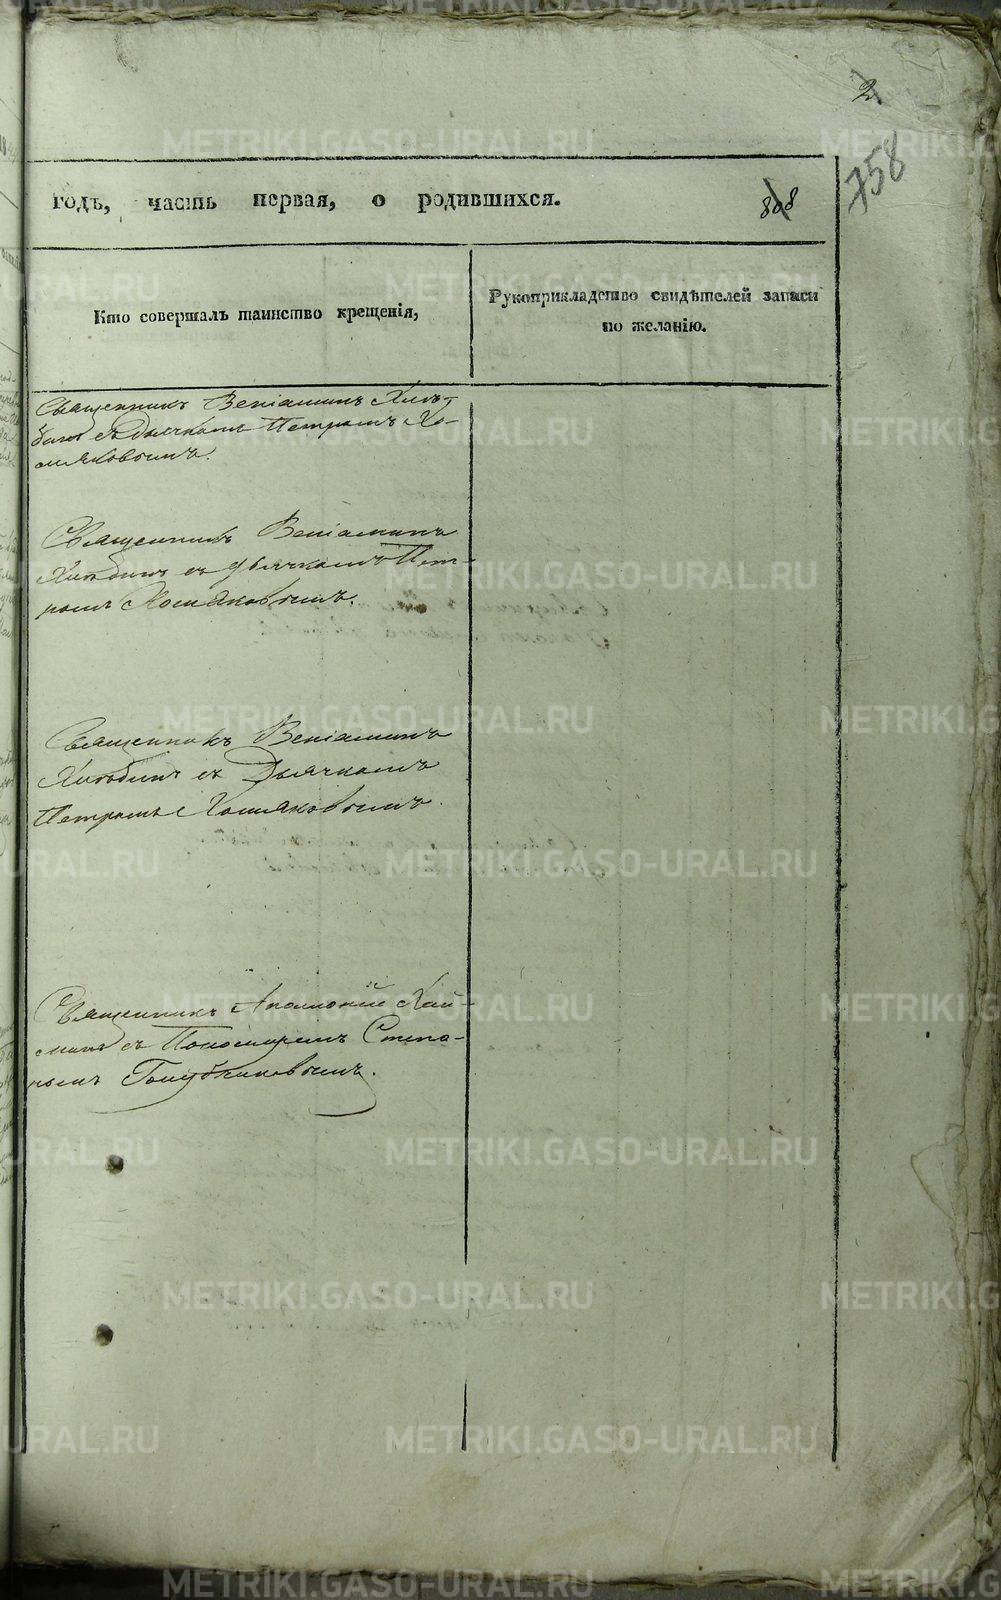 2
758
годъ, часть первая, о родившихся.
808
Кто совершалъ таинство крещенія,
Рукоприкладство свидѣтелей записи
по желанію.
Священникъ Веніаминъ Хлѣ-
бинъ съ Дьячкомъ Петромъ Хо-
мяковымъ.
Священникъ Веніаминъ
Хлѣбинъ съ дьячкомъ Пет-
ромъ Хомяковымъ.
Священникъ Веніаминъ
Хлѣбинъ съ Дьячкомъ
Петромъ Хомяковымъ.
Священникъ Аполлоній
съ Пономаремъ Степа-
номъ Голубчиковымъ.
METRIKI.GASO-URAL.RU